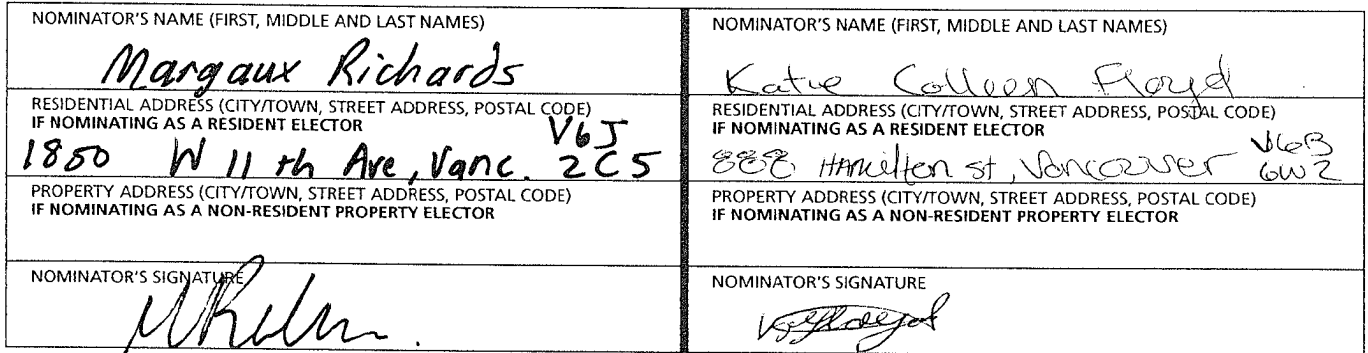 NOMINATOR'S NAME (FIRST, MIDDLE AND LAST NAMES)
Margaux Richards
RESIDENTIAL ADDRESS (CITY/TOWN, STREET ADDRESS, POSTAL CODE)
IF NOMINATING AS A RESIDENT ELECTOR
1850 W 11th Ave, Vanc. V6J
2C5
PROPERTY ADDRESS (CITY/TOWN, STREET ADDRESS, POSTAL CODE)
IF NOMINATING AS A NON-RESIDENT PROPERTY ELECTOR
NOMINATOR'S SIGNATURE
NOMINATOR'S NAME (FIRST, MIDDLE AND LAST NAMES)
Katie Colleen Floyd
RESIDENTIAL ADDRESS (CITY/TOWN, STREET ADDRESS, POSTAL CODE)
IF NOMINATING AS A RESIDENT ELECTOR
888 HAMilton st, Vancouver V6B
6W2
PROPERTY ADDRESS (CITY/TOWN, STREET ADDRESS, POSTAL CODE)
IF NOMINATING AS A NON-RESIDENT PROPERTY ELECTOR
NOMINATOR'S SIGNATURE